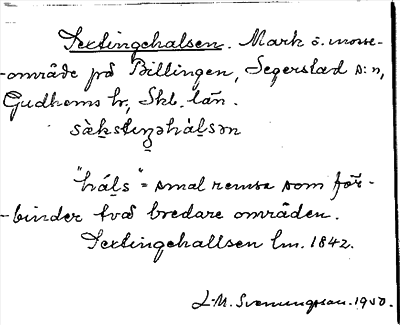 Sextingehalsen. Mark o. mosse-
-område på Billingen, Segerstad s:n,
Gudhems hr, Skb. län.
sàksteŋəhàlsən
"háls" = smal remsa som för-
-binder två bredare områden.
Sextingehallsen lm. 1842.
J.M. Svenungsson. 1950.